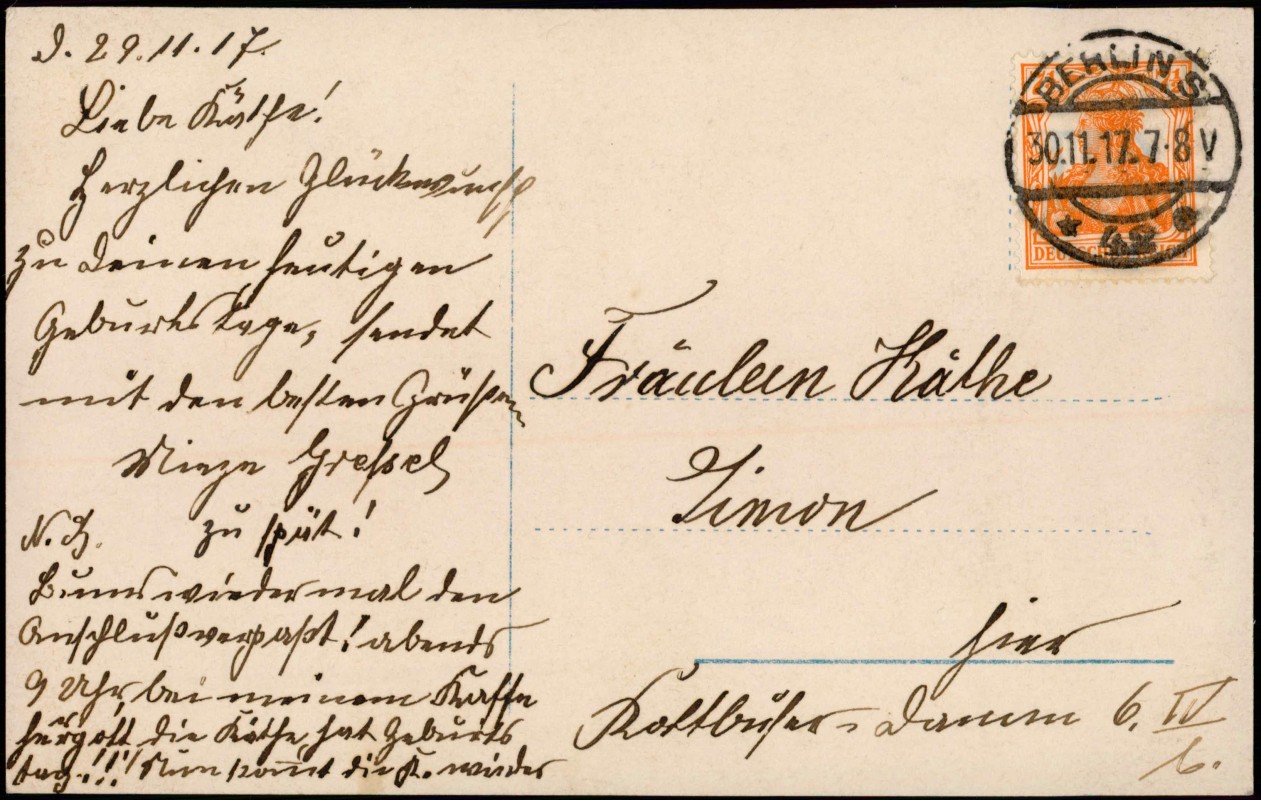 d. 29.11.17.
Liebe Käthe!
Herzlichen Glückwunsch
zu Deinen heutigen
Geburtstage, sendet
mit den besten Grüßen
Mieze
N. B. zu spät!
Bums wieder mal den
Anschluß verpaßt! abends
9 Uhr, bei meinem Kaffe
die Käthe, hat Geburts
tag!!! Nun kommt die K. wieder
BERLIN S
30.11.17. 7-8 V
* 42 *
DEUTSCHES REICH
Fräulein Käthe
Simon
hier
Kottbuser-Damm 6. IV